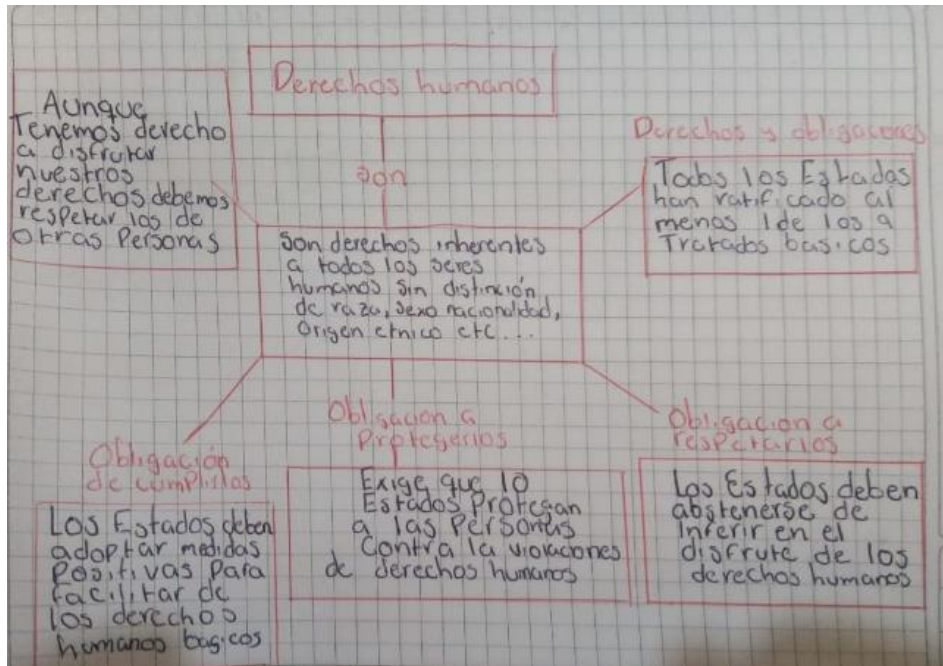 Derechos humanos
Aunque
Tenemos derecho
a disfrutar
nuestros
derechos debemos
respetar los de
Otras Personas
son
Derechos y obligaciones
Todos los Estados
han ratificado al
menos 1 de los 9
Tratados basicos
Son derechos inherentes
a todos los seres
humanos sin distinción
de raza, sexo nacionalidad,
Origen etnico etc...
Obligación
de cumplirlos
Los Estados deben
adoptar medidas
Positivas Para
facilitar de
los derechos
humanos basicos
Obligacion a
Protegerlos
Exige que lo
Estados Protegan
a las Personas
Contra la violaciones
de derechos humanos
Obligacion a
respetarlos
Los Estados deben
abstenerse de
Inferir en el
disfrute de los
derechos humanos